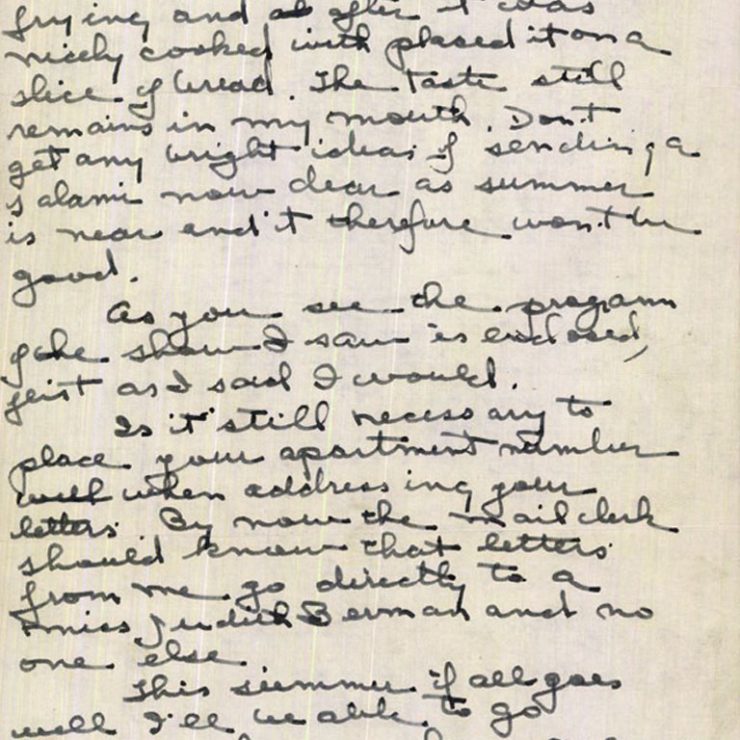 frying and after it was
nicely cooked with placed it on a
slice of bread. The taste still
remains in my mouth. Don't
get any bright ideas of sending a
salami now dear as summer
is near and it therefore won't be
good.
As you see the program
of the show I saw is enclosed,
just as I said I would.
Is it still necessary to
place your apartment number
when addressing your
letters. By now the mail clerk
should know that letters
from me go directly to a
miss Judith Berman and no
one else.
This summer if all goes
well I'll be able to go